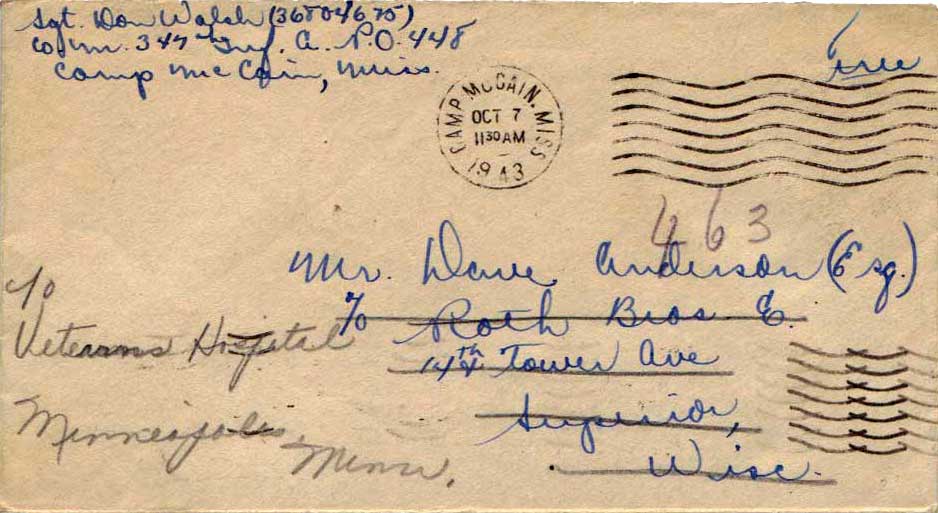 Sgt. Don Walsh (36804675)
Co. M. 347th Inf. A.P.O. 448
Camp McCain, Miss.
Free
CAMP MCCAIN, MISS
OCT 7
11 30 AM
1943
463
Mr. Dave Anderson (Esq.)
c/o Roth Bros. E.
14th Tower Ave
Superior,
Wisc.
c/o
Veterans Hospital
Minneapolis,
Minn.